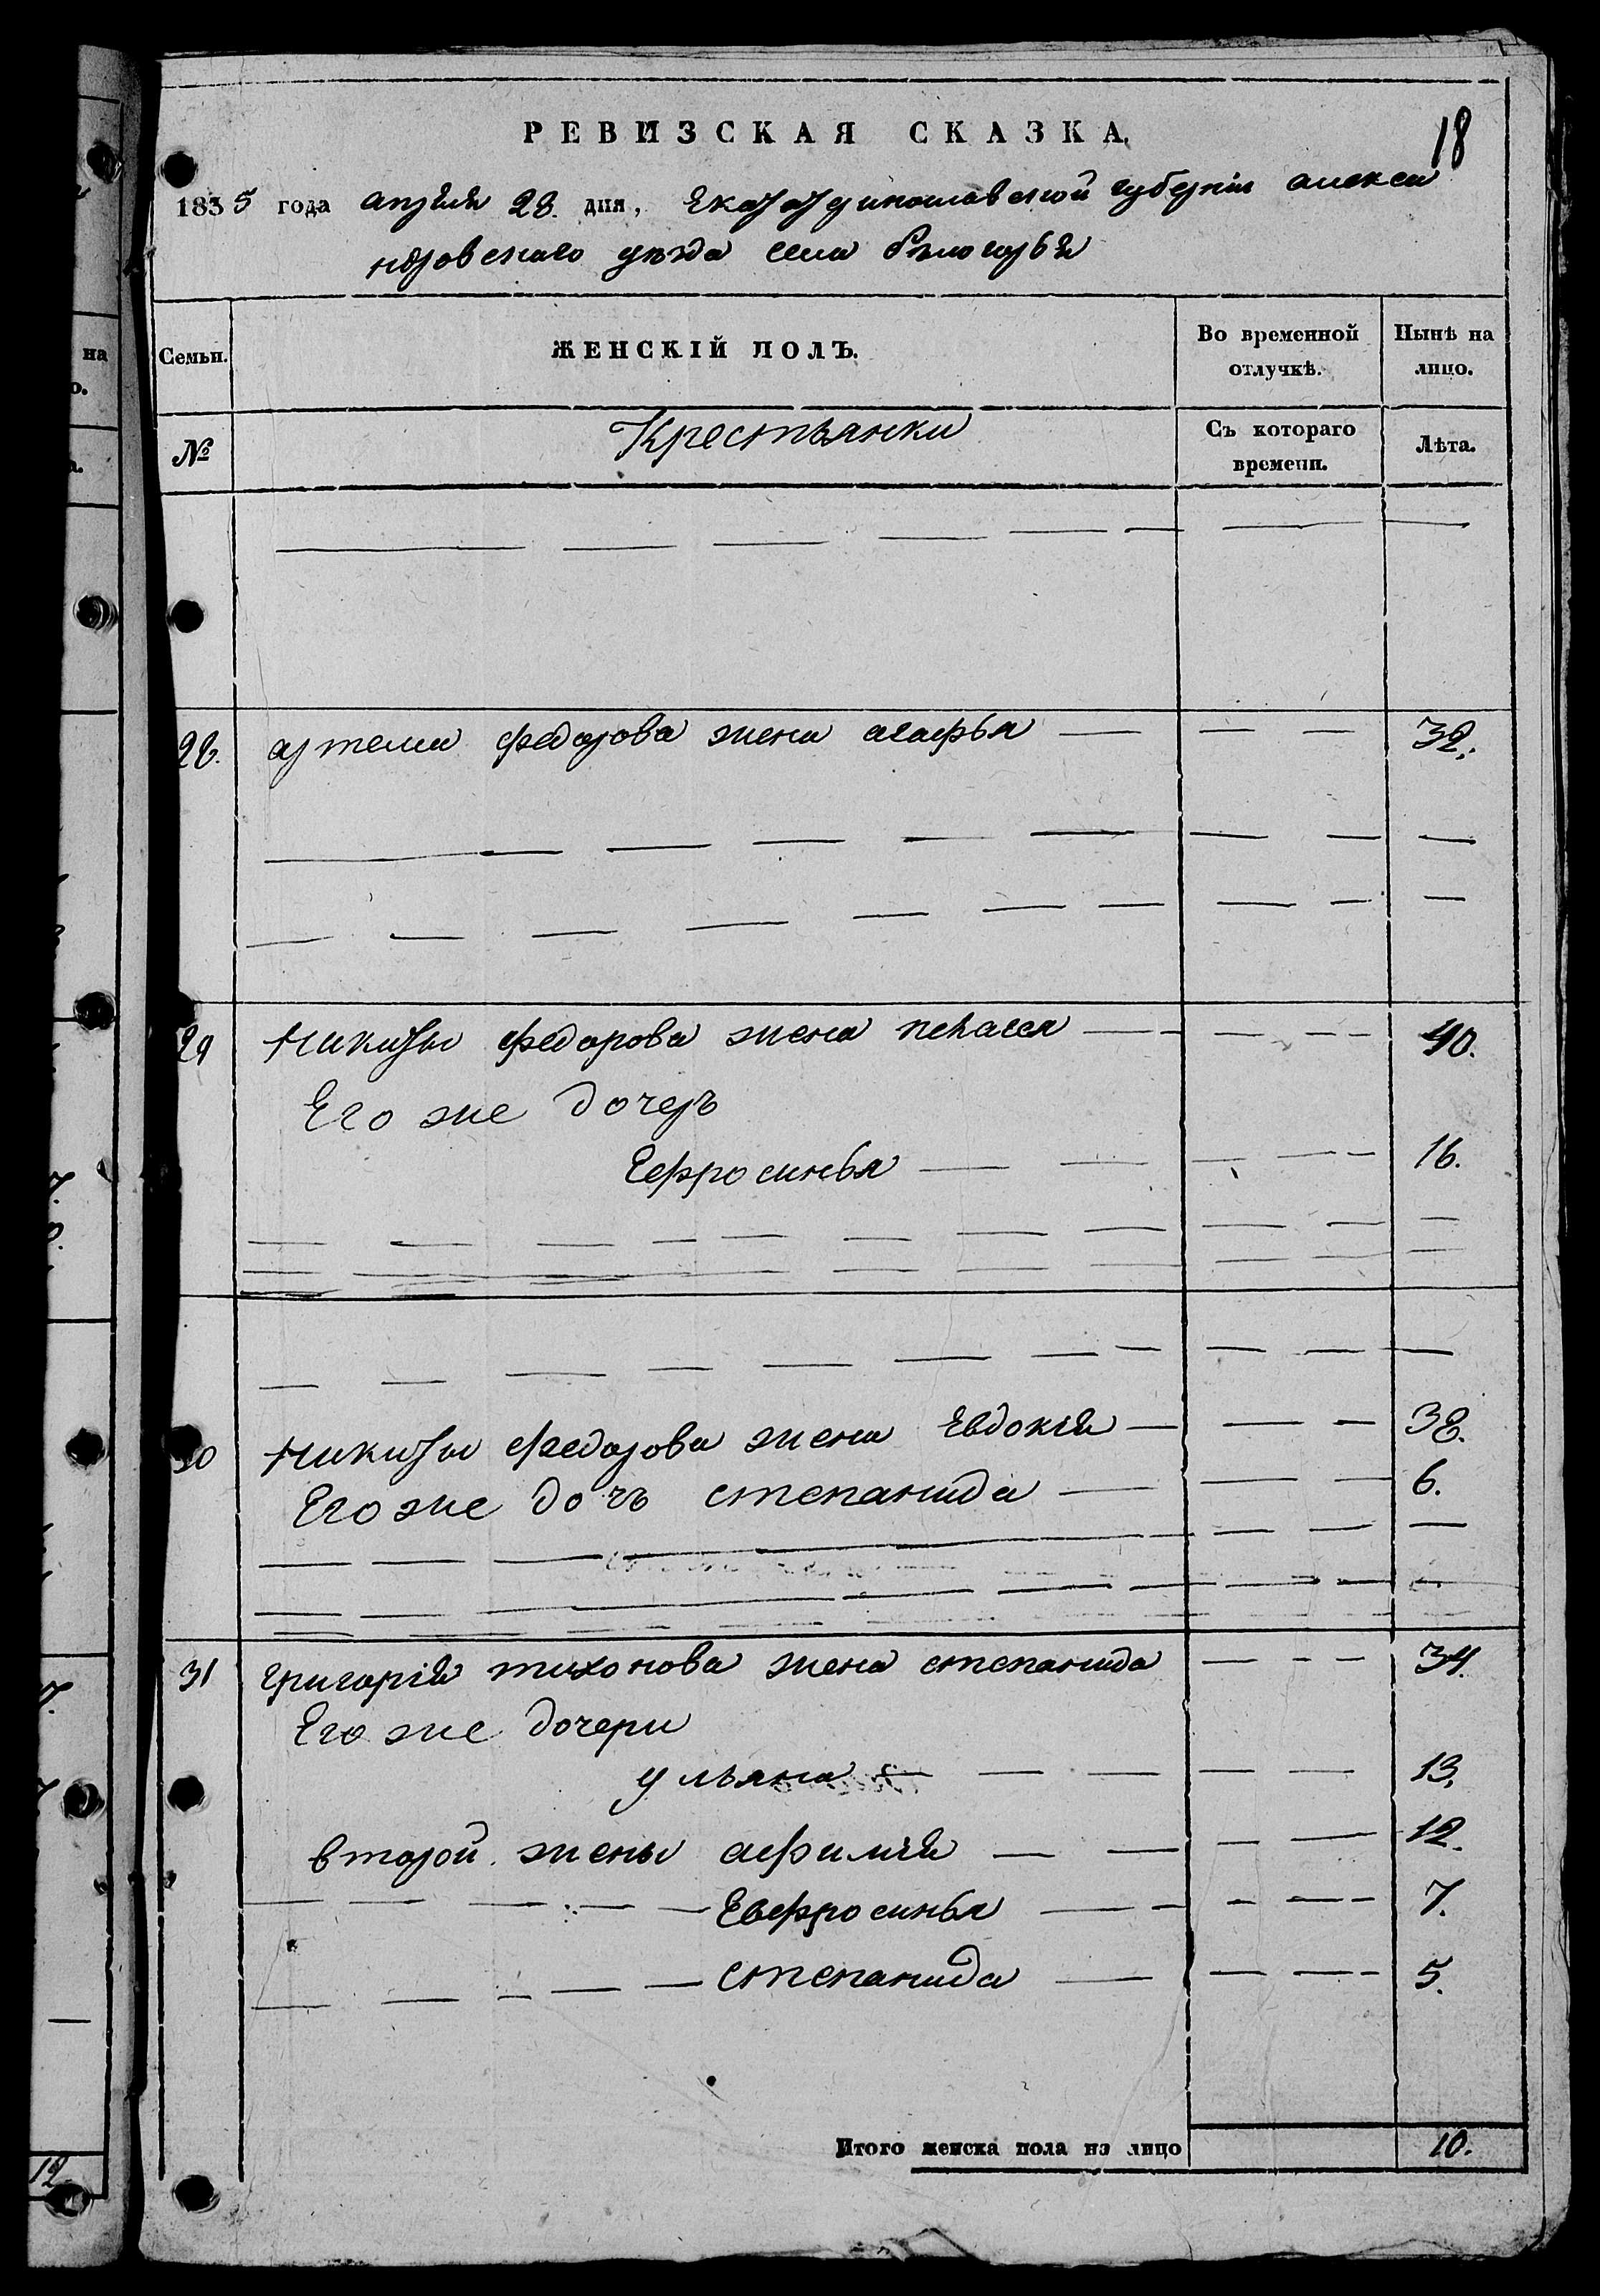 РЕВИЗСКАЯ СКАЗКА.
18
1835 года апреля 28. дня, Екатеринославской губернии алекса
ндровскаго уѣзда села бѣлогорья
Семьи. ЖЕНСКІЙ ПОЛЪ. Во временной отлучкѣ. Нынѣ на лицо.
№ Крестьянки Съ котораго времени. Лѣта.
28. артема федорова жена агафья 32.
29 Никиты федорова жена 40.
Его же дочерь
Ефросинья 16.
30 Никиты федорова жена Евдокия 38.
Его же дочь степанида 6.
31 григория тихонова жена степанида 34.
Его же дочери
ульяна 13.
второй жены афимия 12.
Евфросинья 7.
степанида 5.
Итого женска пола на лицо 10.
на
о.
а.
12